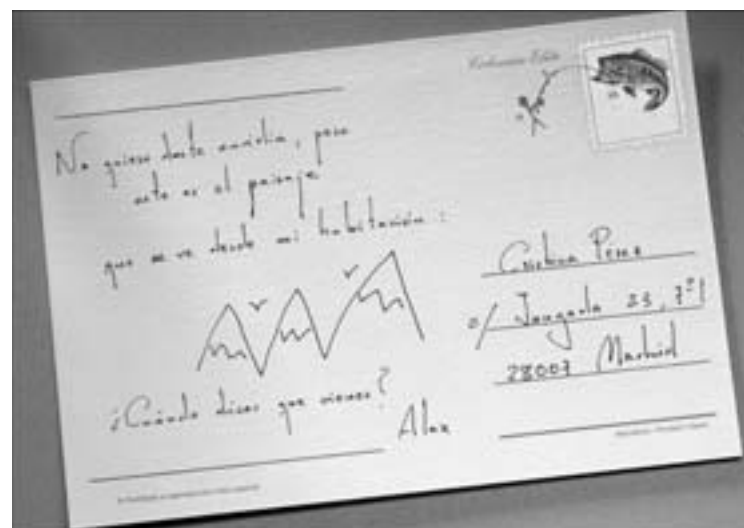 No quiero darte envidia, pero
este es el paisaje
que se ve desde mi habitación:
¿Cuándo dices que vienes?
Alex
Cristina Pérez
c/ 23, 7º
28007 Madrid